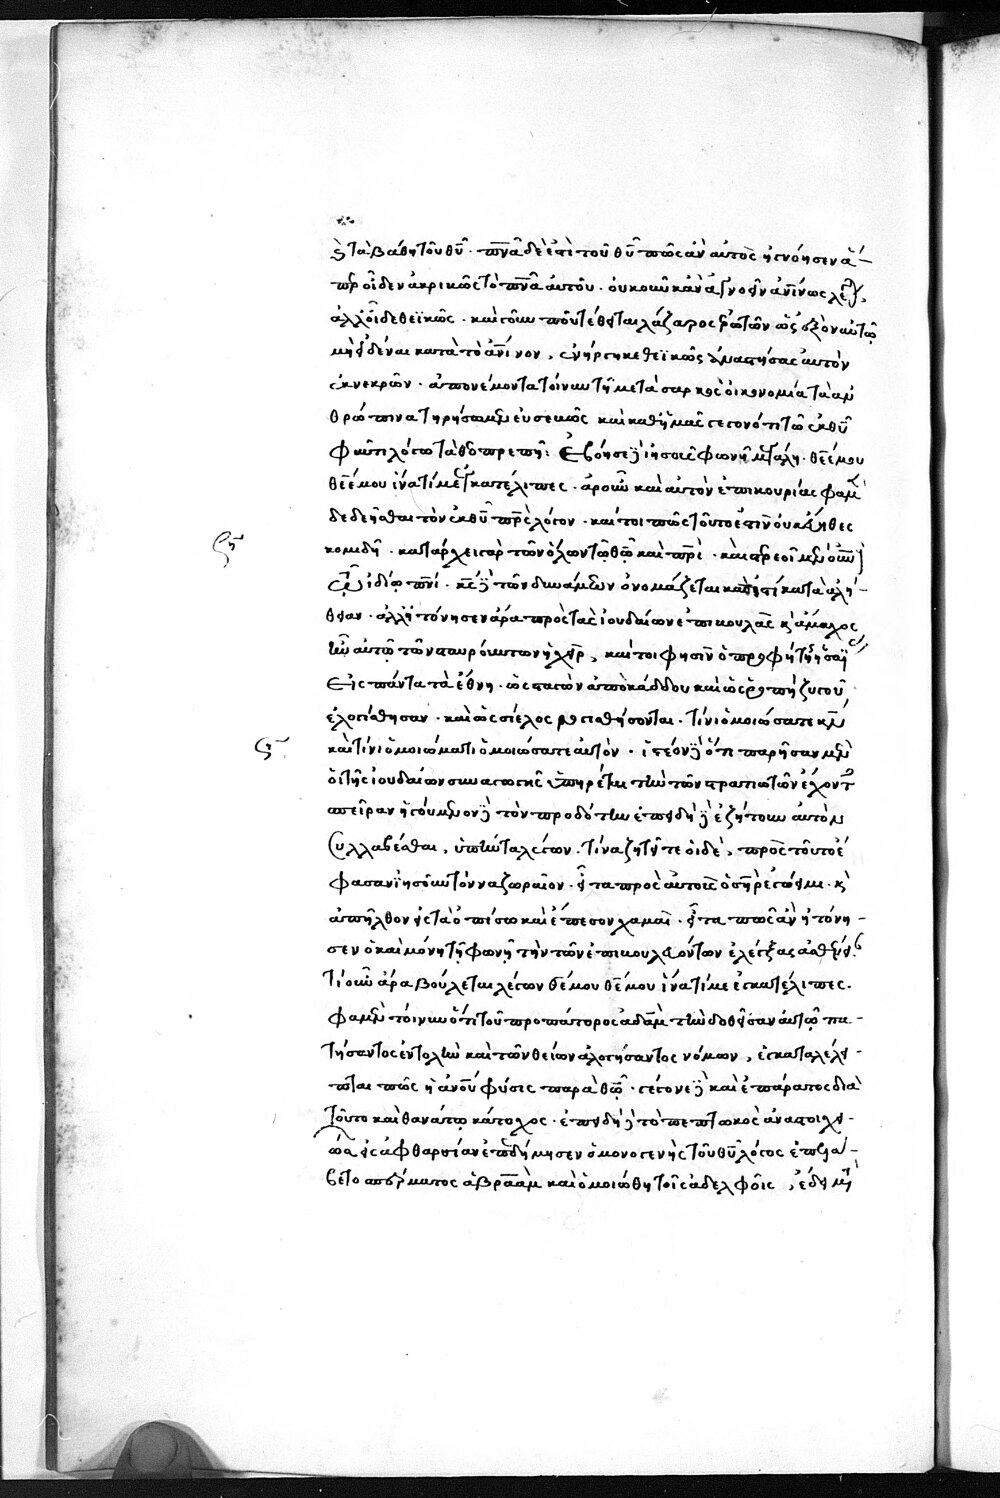 καὶ τὰ βάθη τοῦ θυ. πνα δὲ ἐπὶ τοῦ θυ πῶς ἂν αὐτὸς ἠγνόησεν ἅ-
περ οἶδεν ἀκριβῶς τὸ πνα αὐτοῦ. οὐκοῦν κἂν ἀγνοεῖν ἀνινως λέγῃ,
ἀλλ' οἶδε θεϊκῶς. καὶ ποῦ τέθειται λάζαρος ἐρωτῶν ὡς ἐξὸν αὐτῷ
μὴ εἰδέναι κατὰ τὸ ἀνινον, ἐνήργηκε θεϊκῶς ἀναστήσας αὐτὸν
ἐκ νεκρῶν. ἀπονέμοντα τοίνυν τῇ μετὰ σαρκὸς οἰκονομία τὰ ἀν
θρώπινα τηρήσωμεν εὐσεβῶς καὶ καθ' ἡμᾶς γεγονότι τῷ ἐκ θυ
φωτὶ λόγω τὰ θεοπρεπῆ: Ἐβόησεν ὁ ις φωνῇ μεγάλη. θεέ μου
θεέ μου ἱνατί με ἐγκατέλιπες. ἆρ' οὖν καὶ αὐτὸν ἐπικουρίας φαμὲν
δεδεῆσθαι τὸν ἐκ θυ πρς λόγον. καίτοι πῶς τοῦτό ἐστιν οὐκ ἀηθες
κομιδῆ. κατάρχει γὰρ τῶν ὅλων τῷ θω καὶ πρι. καὶ
ἐν ἰδίῳ πνι. κς τῶν δυνάμεων ὀνομάζεται καὶ ἔστι κατὰ ἀλή-
θειαν. ἀλλ' ἠτόνησεν ἄρα πρὸς τὰς ἰουδαίων ἐπιβουλὰς κὶ ἄμαχος
ἦν αὐτῷ τῶν σταυρούντων ἡ χεὶρ, καίτοι φησὶν ὁ προφήτης ἠσαΐ
εἰς πάντα τὰ ἔθνη. ὡς σταγὼν ἀπὸ κάδδου καὶ ὡς ῥοπὴ ζυγοῦ
ἐλογίσθησαν. καὶ ὡς σίελος λογισθήσονται. τίνι ὁμοιώσατε κν
καὶ τίνι ὁμοιώματι ὁμοιώσατε αὐτόν. ἰστέον ὅτι παρῆσαν μὲν
οἱ τῆς ἰουδαίων συναγωγῆς ὑπηρέται τὴν τῶν στρατιωτῶν ἔχοντες
σπεῖραν ἡγούμενον τὸν προδότην ἐπειδὴ ἐζήτουν αὐτὸν
συλλαβέσθαι, ὑπήντα λέγων. τίνα ζητεῖτε οἱ δὲ, πρὸς τοῦτο ἔ
φασαν ἰησοῦν τὸν ναζωραῖον. εἶτα πρὸς αὐτοὺς ὁ σηρ ἐγώ εἰμι. κὶ
ἀπῆλθον εἰς τὰ ὀπίσω καὶ ἔπεσον χαμαί. εἶτα πῶς ἂν ἠτόνη-
σεν ὁ καὶ μόνη τῇ φωνῇ τὴν τῶν ἐπιβουλευόντων ἐλέγξας ἀσθένειαν
τί οὖν ἄρα βούλεται λέγων θέ μου θέ μου ἱνατί με ἐγκατέλιπες.
φαμὲν τοίνυν ὅτι τοῦ προπάτορος ἀδὰμ τὴν δοθεῖσαν αὐτῷ πα-
τήσαντος ἐντολὴν καὶ τῶν θείων ἀλογήσαντος νόμων, ἐγκαταλέλει-
πται πῶς ἡ ἀνου φύσις παρὰ θω. γέγονε καὶ ἐπάρατος διὰ
τοῦτο καὶ θανάτῳ κάτοχος. ἐπειδὴ τὸ πεπτωκὸς ἀναστοιχει-
ῶσαι εἰς ἀφθαρσίαν ἐπεδήμησεν ὁ μονογενὴς τοῦ θυ λόγος ἐπελά-
βετο σπέρματος ἀβραὰμ καὶ ὁμοιώθη τοῖς ἀδελφοῖς, ἔδει μὴ